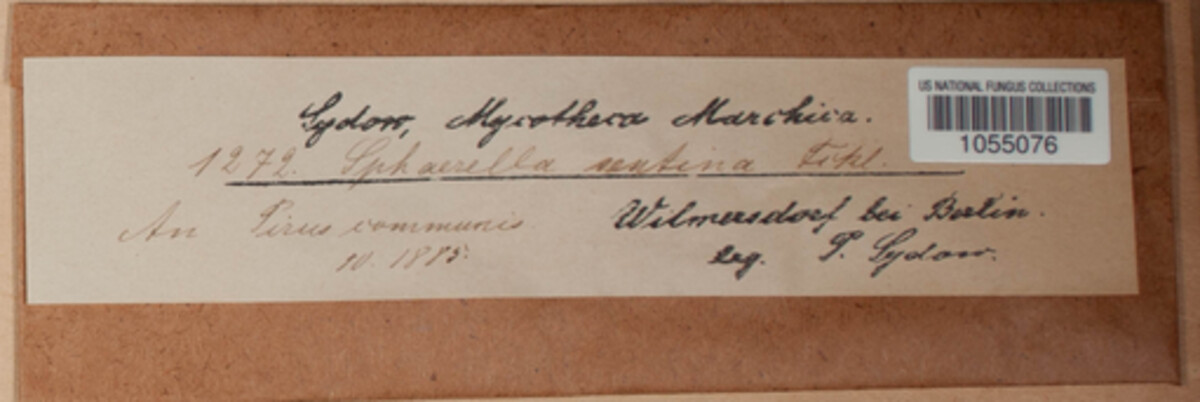 Sydow, Mycotheca Marchica.
US NATIONAL FUNGUS COLLECTIONS
1055076
1272. Sphaerella sentina Fckl.
An Pirus communis
10. 1885.
Wilmersdorf bei Berlin.
leg. P. Sydow.